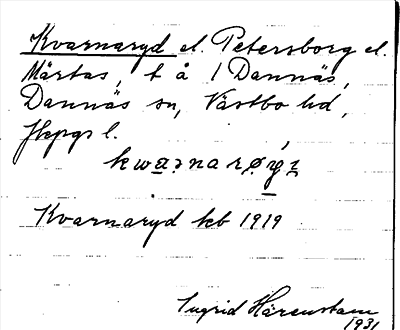 Kvarnaryd el. Petersborg el.
Mårtas, t å 1 Dannäs,
Dannäs sn, Västbo hd,
Jkpgs l.
Kvarnaryd kb 1919
Ingrid Härenstam
1931